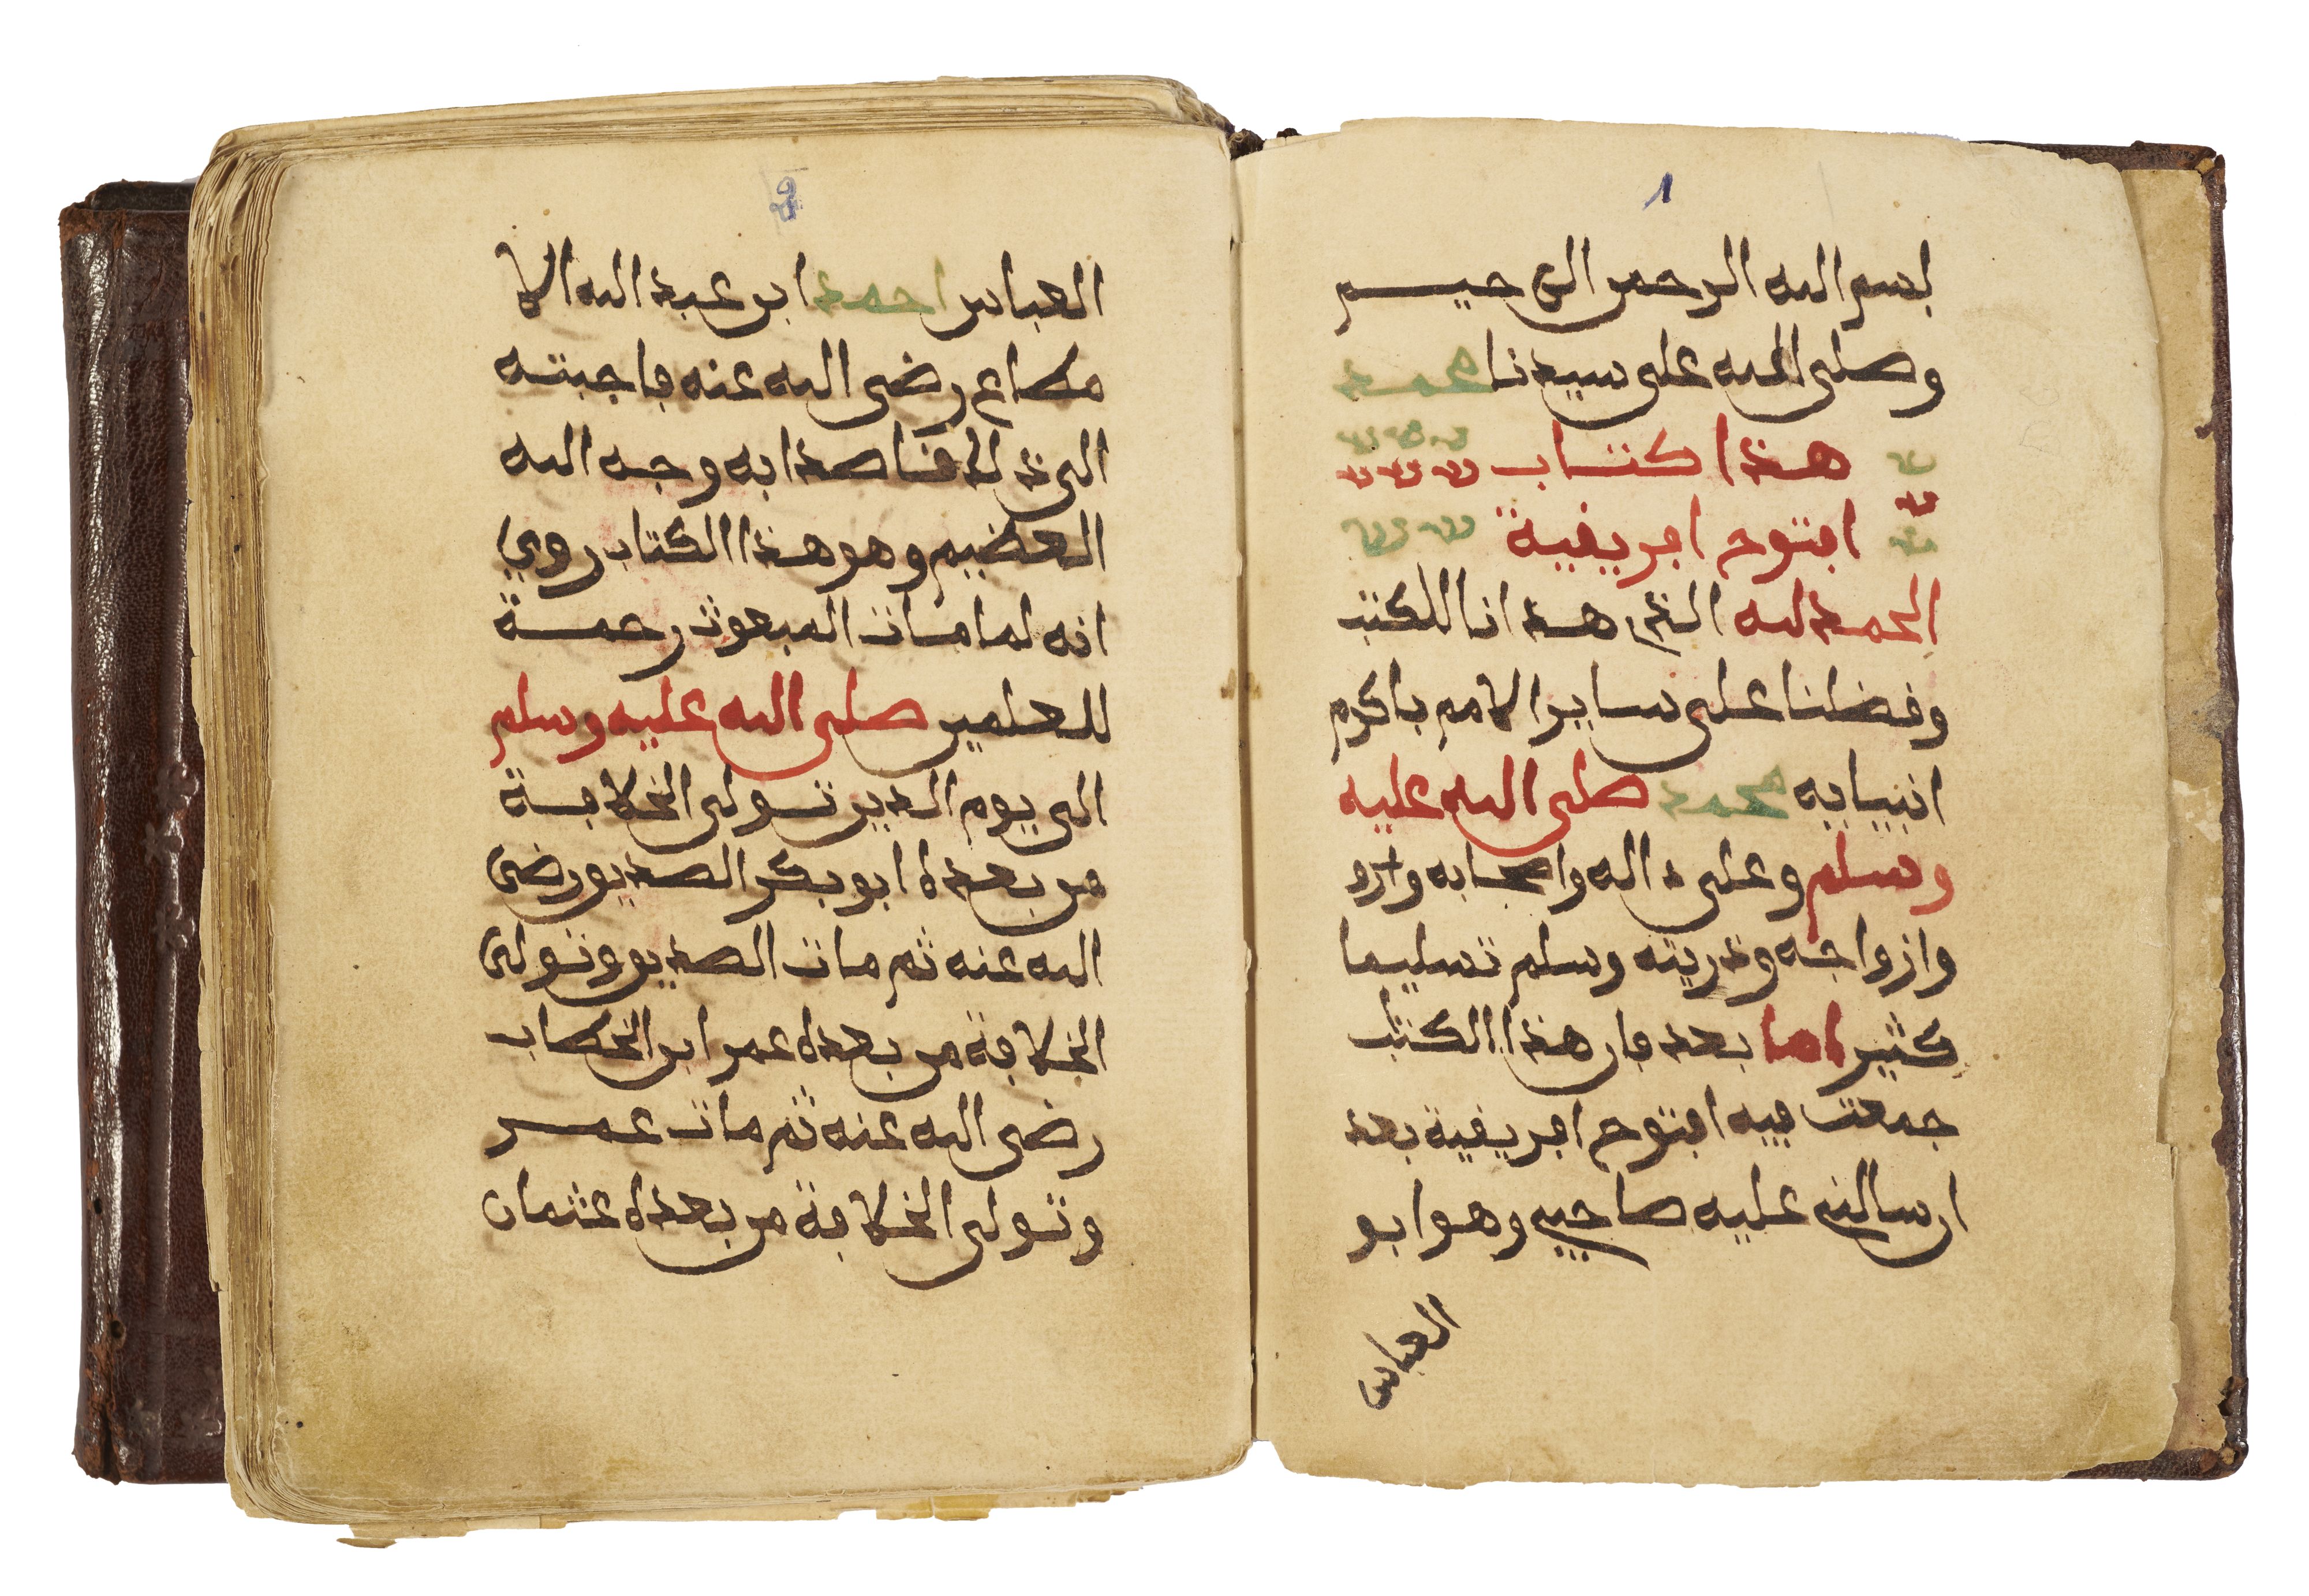 ١
بسم الله الرحمن الرحيم
وصلى الله على سيدنا محمد
هذا كتاب
افتوح افريقية
الحمد لله الذي هدانا للكتب
وفضلنا على ساير الامم باكرم
انبيايه محمد صلى الله عليه
وسلم وعلى ءاله واصحابه
وازواجه وذريته وسلم تسليما
كثيرا اما بعد فان هذا الكتب
جمعت فيه افتوح افريقية بعد
ان سالني عليه صاحبي وهو ابو
العباس
العباس احمد ابن عبد الله الا
مطاع رضى الله عنه فاجبته
الى ذلك قاصدا به وجه الله
العضيم وهو هذا الكتاب روي
انه لما مات المبعوث رحمة
للعلمين صلى الله عليه وسلم
الى يوم الدين تولى الخلافة
من بعده ابو بكر الصديق رضى
الله عنه ثم مات الصديق وتولى
الخلافة من بعده عمر ابن الخطاب
رضى الله عنه ثم مات عمر
وتولى الخلافة من بعده عثمان